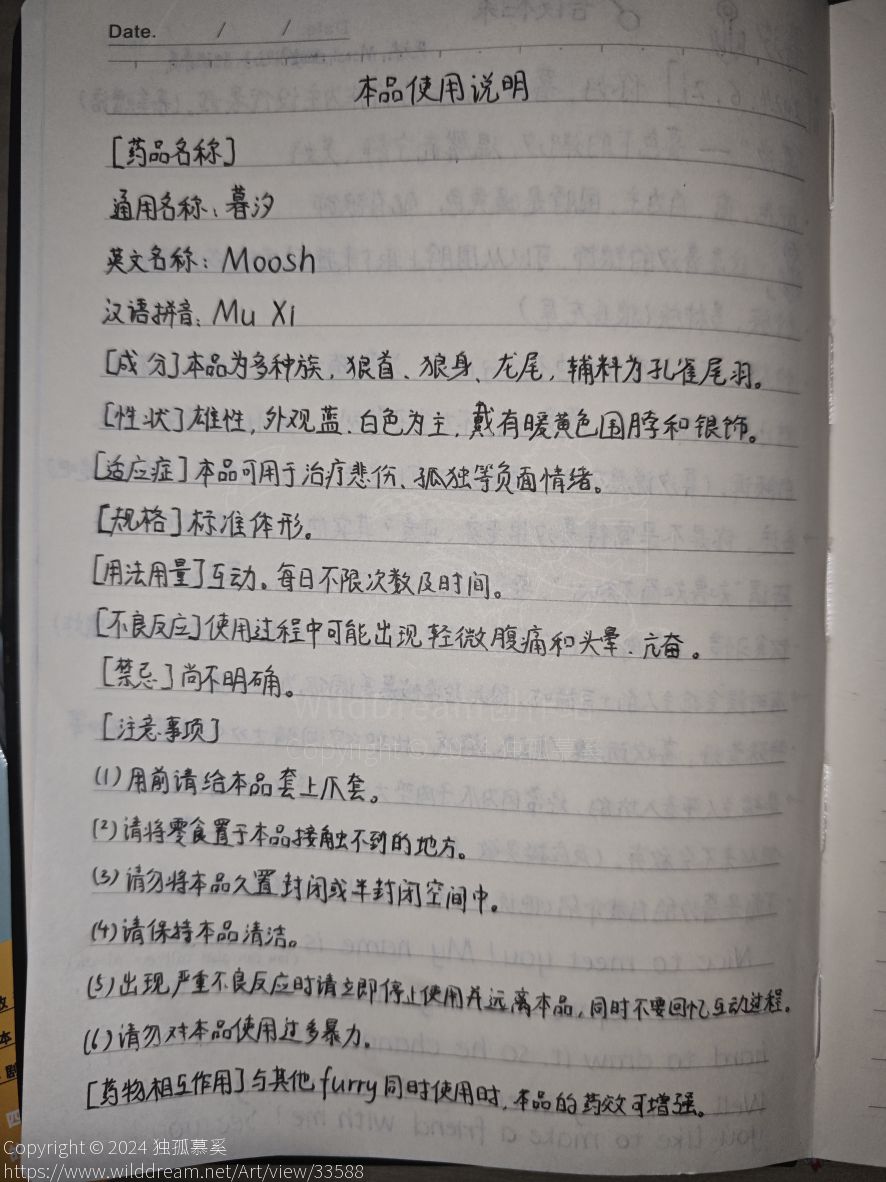 Date. / /
本品使用说明
[药品名称]
通用名称：暮汐
英文名称：Moosh
汉语拼音：Mu Xi
[成 分]本品为多种族，狼首、狼身、龙尾，辅料为孔雀尾羽。
[性状]雄性，外观蓝、白色为主，戴有暖黄色围脖和银饰。
[适应症]本品可用于治疗悲伤、孤独等负面情绪。
[规格]标准体形。
[用法用量]互动。每日不限次数及时间。
[不良反应]使用过程中可能出现轻微腹痛和头晕、亢奋。
[禁忌]尚不明确。
[注意事项]
(1)用前请给本品套上爪套。
(2)请将零食置于本品接触不到的地方。
(3)请勿将本品久置封闭或半封闭空间中。
(4)请保持本品清洁。
(5)出现严重不良反应时请立即停止使用并远离本品，同时不要回忆互动过程。
(6)请勿对本品使用过多暴力。
[药物相互作用]与其他furry同时使用时，本品的药效可增强。
Copyright © 2024 独孤慕奚
https://www.wilddream.net/Art/view/33588